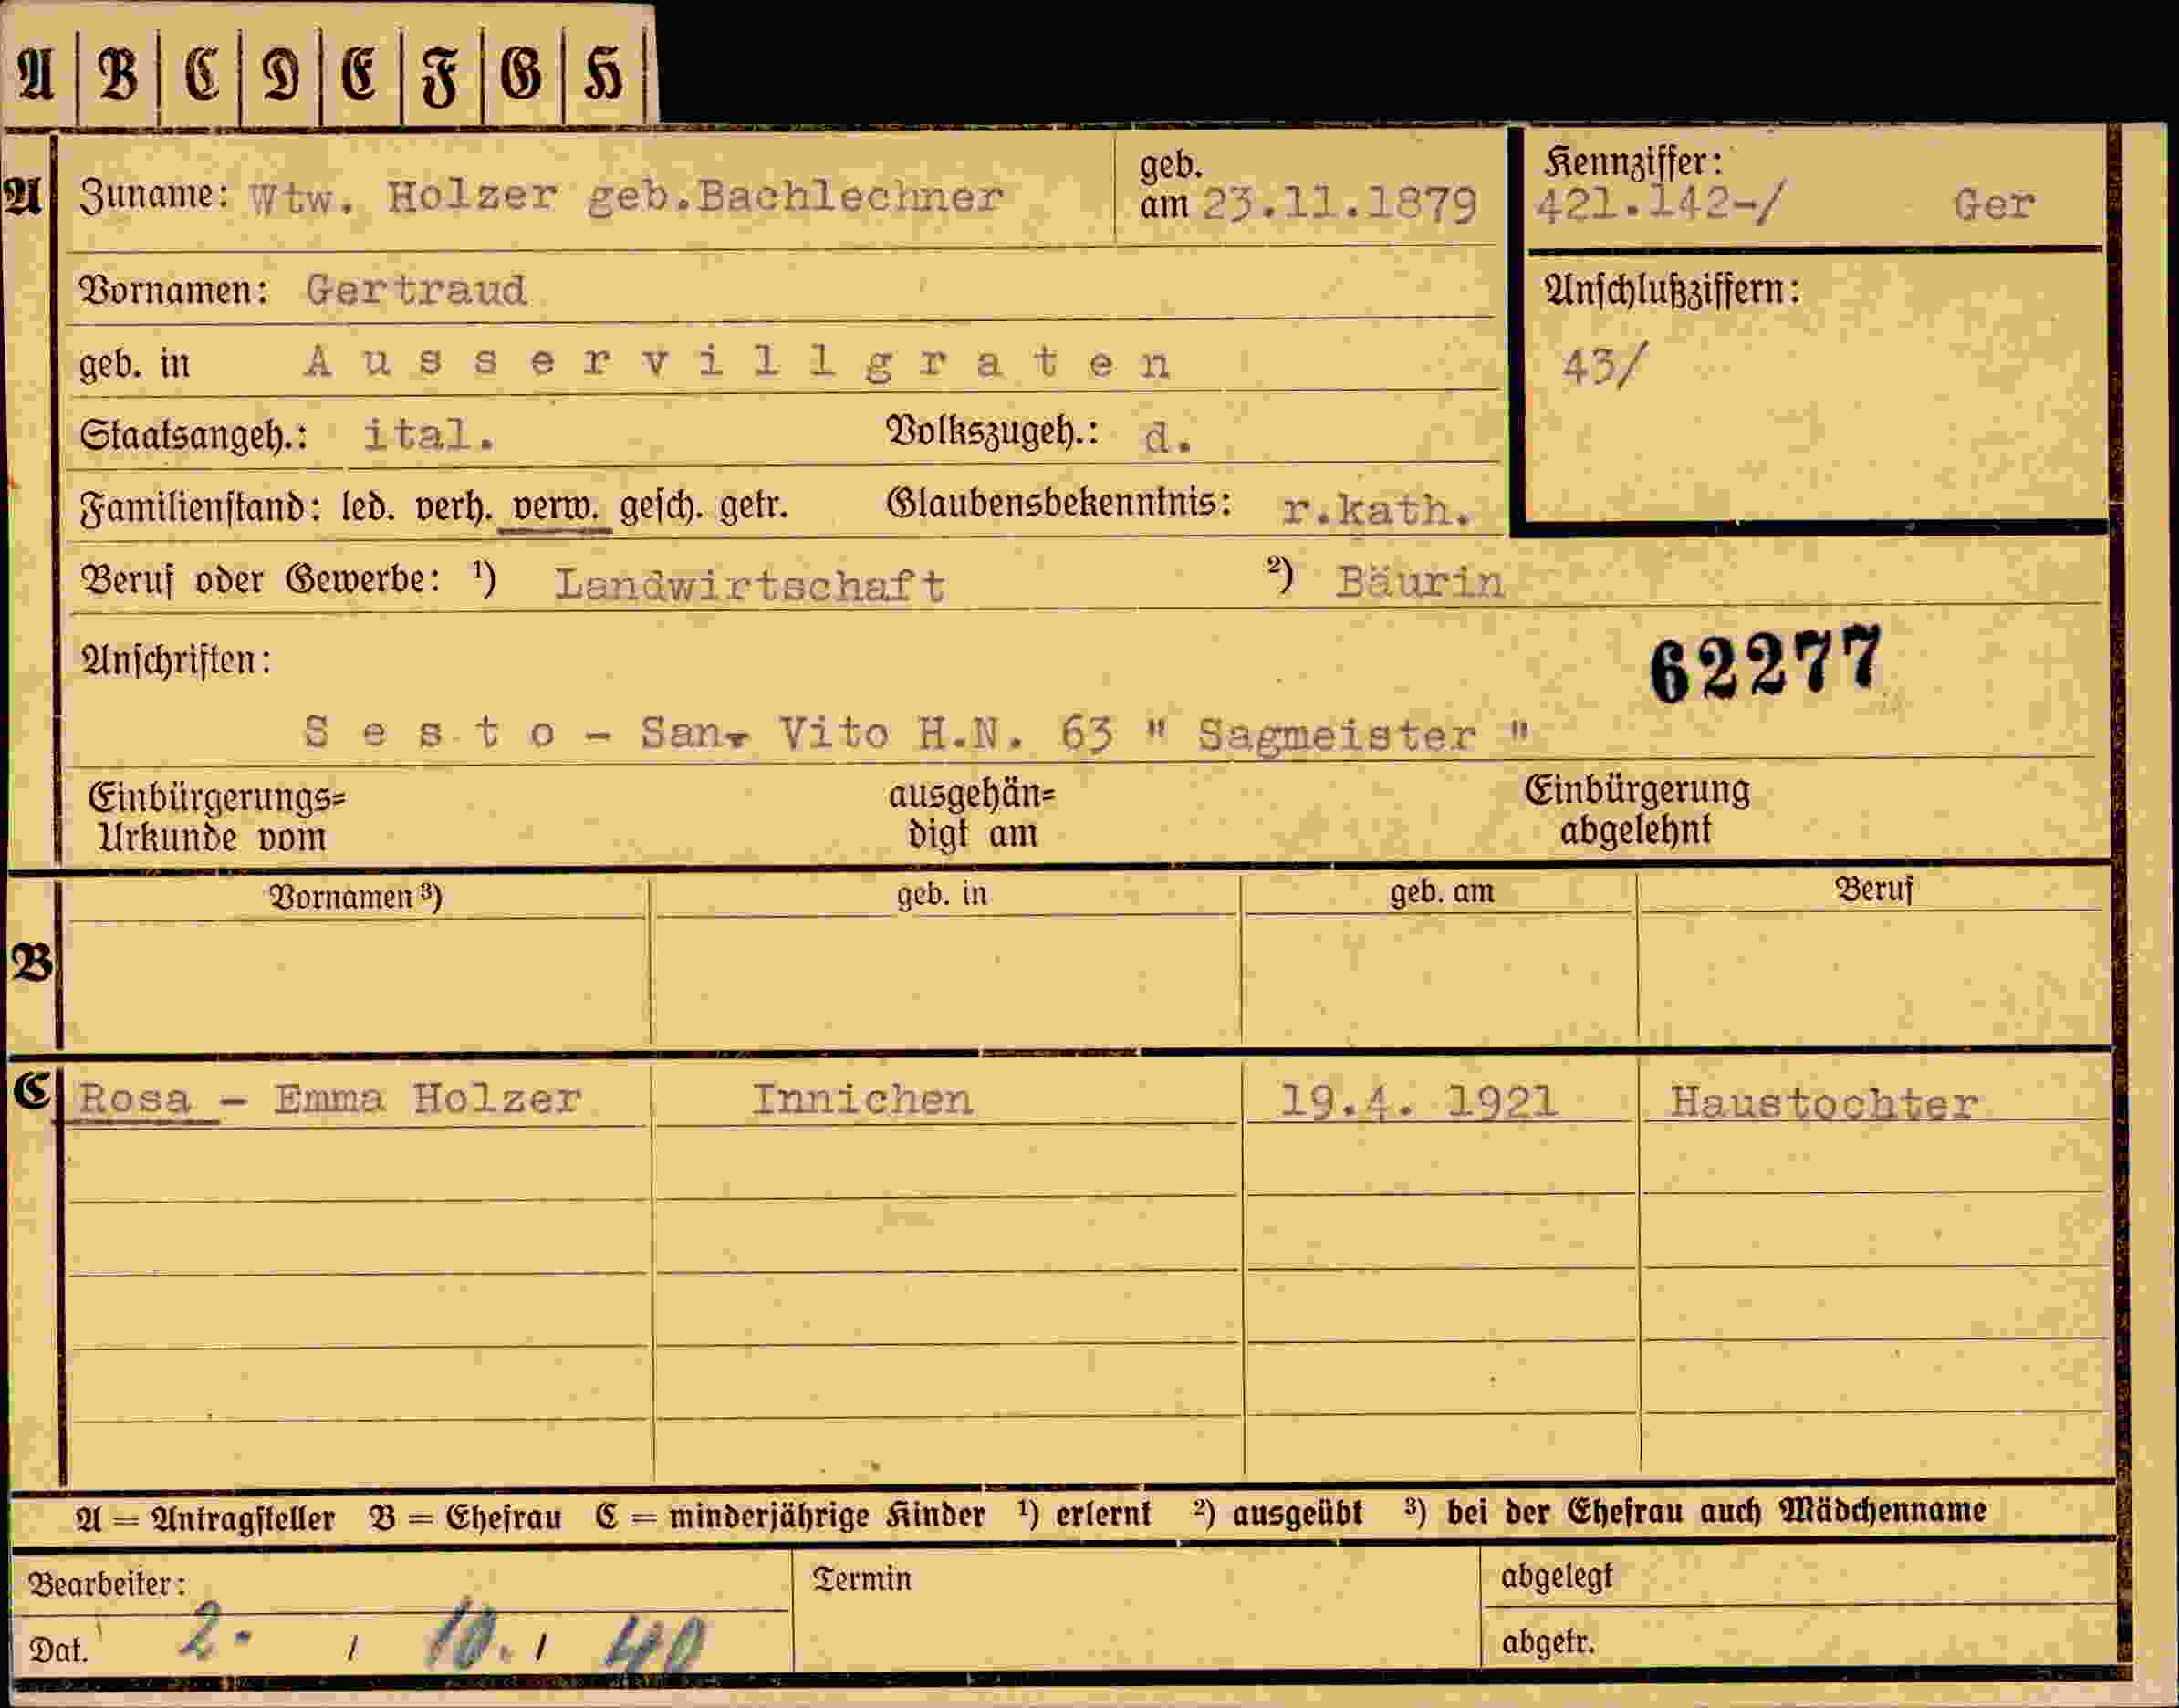 A | B | C | D | E | F | G | H
A Zuname: Wtw. Holzer geb.Bachlechner geb. am 23.11.1879
Kennziffer: 421.142-/ Ger
Vornamen: Gertraud
Anschlußziffern:
geb. in Ausservillgraten
43/
Staatsangeh.: ital. Volkszugeh.: d.
Familienstand: led. verh. verw. gesch. getr. Glaubensbekenntnis: r.kath.
Beruf oder Gewerbe: ¹) Landwirtschaft ²) Bäurin
Anschriften: 62277
Sesto - San. Vito H.N. 63 " Sagmeister "
Einbürgerungs= ausgehän= Einbürgerung
Urkunde vom digt am abgelehnt
Vornamen ³) geb. in geb. am Beruf
B
C Rosa - Emma Holzer Innichen 19.4. 1921 Haustochter
A = Antragsteller B = Ehefrau C = minderjährige Kinder ¹) erlernt ²) ausgeübt ³) bei der Ehefrau auch Mädchenname
Bearbeiter: Termin abgelegt
Dat. 2. / 10. / 40 abgetr.